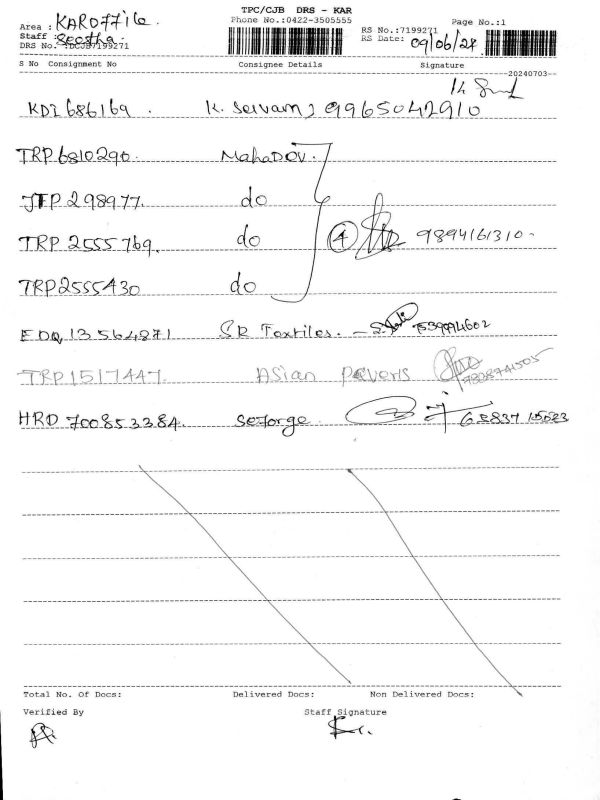 TPC/CJB DRS - KAR
Area : KAROffile. Phone No.:0422-3505555 RS No.:7199271 Page No.:1
Staff : Seetha. RS Date: 09/06/24
DRS No. :DCJB7199271
S No Consignment No Consignee Details Signature
20240703
KDI 686169 . K. Selvam, 9965042910
TRP 6810290. MahaDOV.
JTP 298977. do
TRP 2555769. do 4 9894161310-
TRP 2555430 do
EDQ 13564871 SR Textiles. -
TRP 1517447. Asian pavers
HRD 700853384. Seforge.
Total No. Of Docs: Delivered Docs: Non Delivered Docs:
Verified By Staff Signature